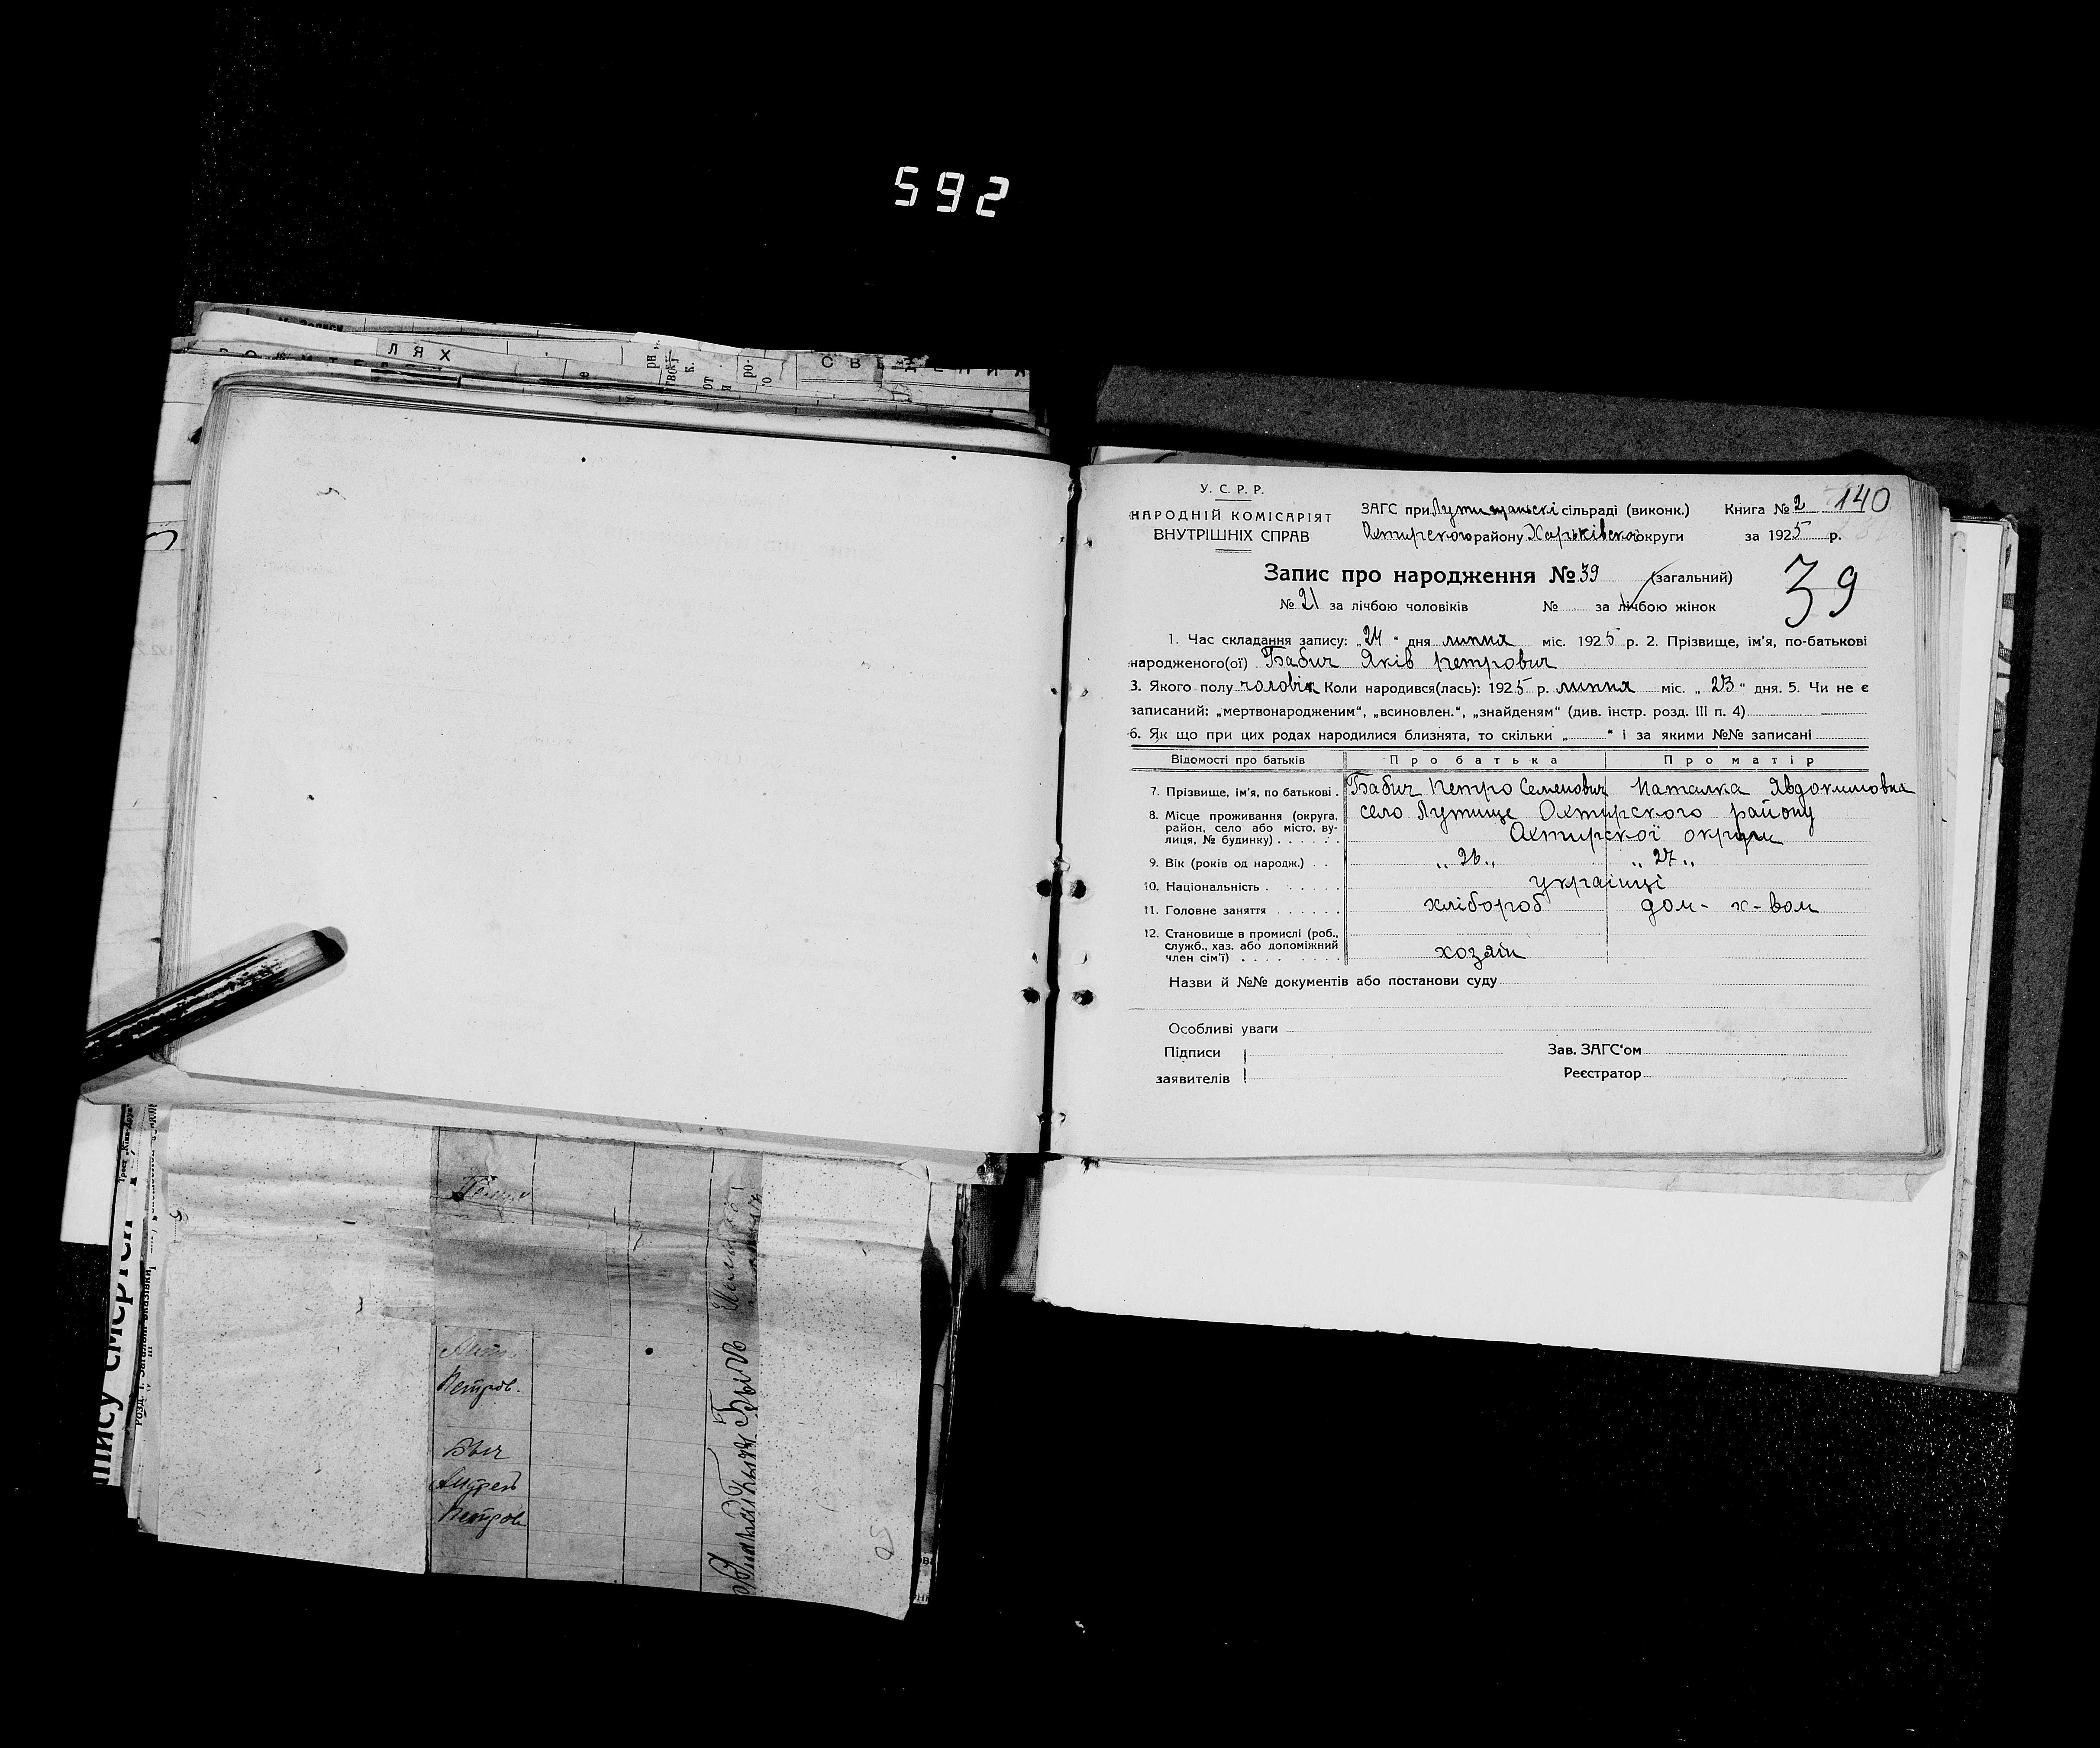 592
ЛЯХ
У. С. Р. Р.
НАРОДНІЙ КОМІСАРІЯТ
ВНУТРІШНІХ СПРАВ
ЗАГС при Лутищанскі сільраді (виконк.)
Охтирского району Харьківскої округи
Книга № 2 140
за 1925 р.
Запис про народження № 39 (загальний)
39
№ 21 за лічбою чоловіків № за лічбою жінок
1. Час складання запису: „24“ дня липня міс. 1925 р. 2. Прізвище, ім'я, по-батькові
народженого(ої) Бабич Яків Петрович
3. Якого полу чоловік Коли народився(лась): 1925 р. липня міс. „23“ дня. 5. Чи не є
записаний: „мертвонародженим“, „всиновлен.“, „знайденям“ (див. інстр. розд. III п. 4)
6. Як що при цих родах народилися близнята, то скільки „ “ і за якими №№ записані
Відомості про батьків Про батька Про матір
7. Прізвище, ім'я, по батькові . Бабич Петро Семенович Наталка Явдокимовна
8. Місце проживання (округа, район, село або місто, ву-
лиця, № будинку) село Лутище Охтирского району
Охтирскої округи
9. Вік (років од народж.) . . „26„ „27„
10. Національність . українці
11. Головне заняття хлібороб дом- х-вом
12. Становище в промислі (роб.,
служб., хаз. або допоміжний
член сім'ї) хозяїн
Назви й №№ документів або постанови суду
Особливі уваги
Підписи
заявителів
Зав. ЗАГС'ом
Реєстратор
Петров.
Быч
Андрей
Петров